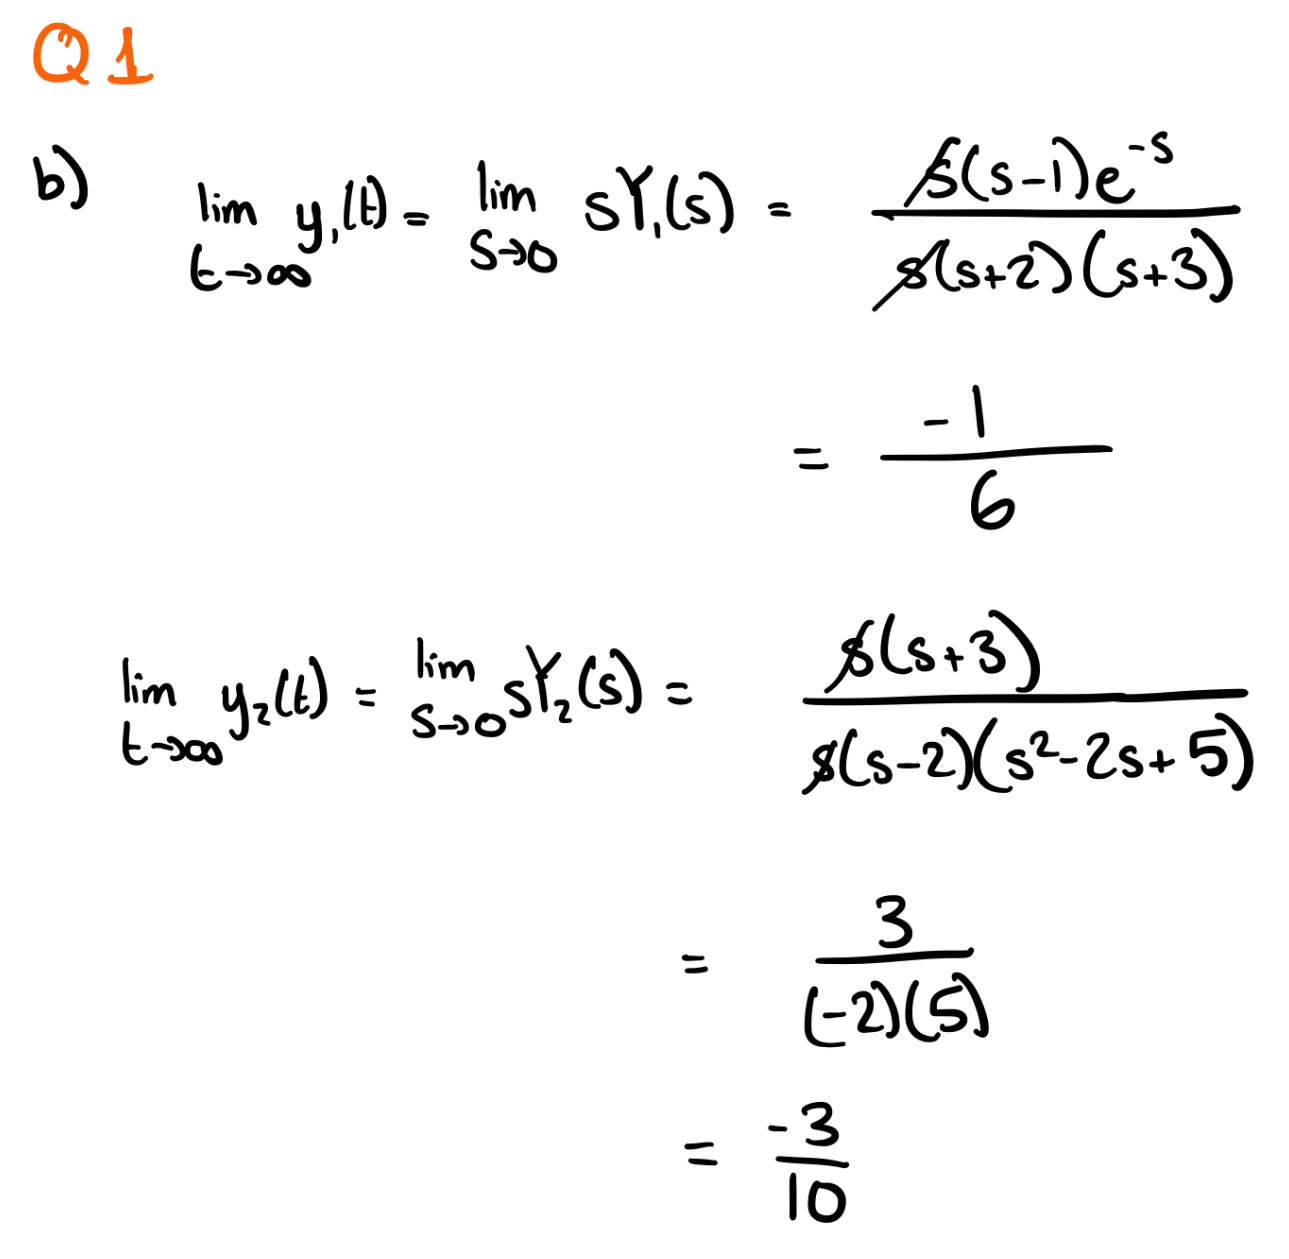 Q1
b) lim t→∞ y₁(t) = lim s→0 sY₁(s) = s(s-1)e^-s / s(s+2)(s+3)
= -1/6
lim t→∞ y₂(t) = lim s→0 sY₂(s) = s(s+3) / s(s-2)(s²-2s+5)
= 3/(-2)(5)
= -3/10